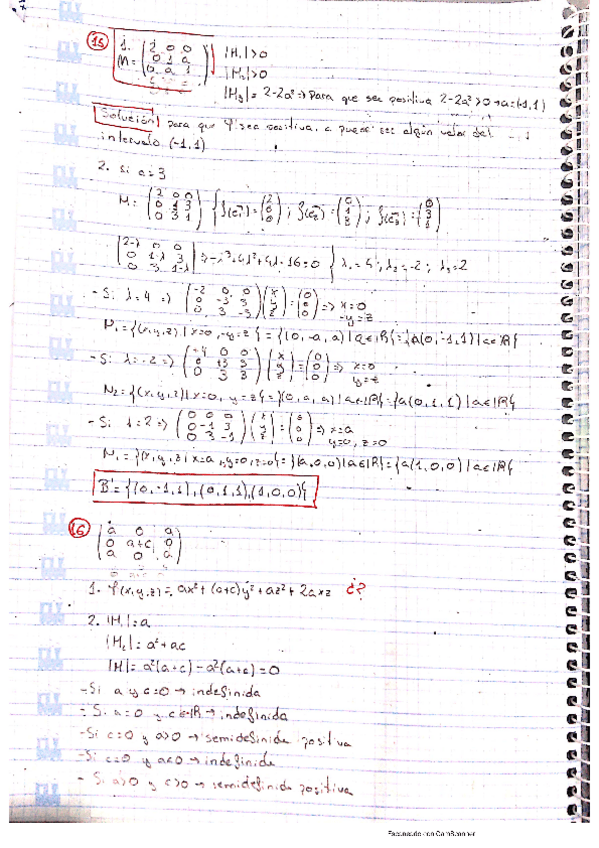 15
1. M = (2 0 0 / 0 1 a / 0 a 1) |H₁| > 0
|H₂| > 0
|H₃| = 2-2a² ⇒ Para que sea positiva 2-2a² > 0 → a = (-1,1)
Solución para que φ sea positiva, a puede ser algún valor del
intervalo (-1,1)
2. Si a = 3
M = (2 0 0 / 0 1 3 / 0 3 1) { f(e₁) = (2 / 0 / 0) ; f(e₂) = (0 / 1 / 3) ; f(e₃) = (0 / 3 / 1)
|2-λ 0 0 / 0 1-λ 3 / 0 3 1-λ| ⇒ -λ³+4λ²+4λ-16=0 } λ₁=4 ; λ₂=-2 ; λ₃=2
- Si λ=4 ⇒ (-2 0 0 / 0 -3 3 / 0 3 -3) (x / y / z) = (0 / 0 / 0) ⇒ x=0
-y=z
M₁ = {(x,y,z) | x=0, -y=z} = {(0,-a,a) | a∈ℝ} = {a(0,-1,1) | a∈ℝ}
- Si λ=-2 ⇒ (-4 0 0 / 0 +3 3 / 0 3 3) (x / y / z) = (0 / 0 / 0) ⇒ x=0
y=z
N₂ = {(x,y,z) | x=0, y=z} = {(0,a,a) | a∈ℝ} = {a(0,1,1) | a∈ℝ}
- Si λ=2 ⇒ (0 0 0 / 0 -1 3 / 0 3 -1) (x / y / z) = (0 / 0 / 0) ⇒ x=a
y=0, z=0
M₁ = {(x,y,z) | x=a, y=0, z=0} = {(a,0,0) | a∈ℝ} = {a(1,0,0) | a∈ℝ}
B' = {(0,-1,1), (0,1,1), (1,0,0)}
16 (a 0 a / 0 a+c 0 / a 0 a)
1. φ(x,y,z) = ax²+(a+c)y²+az²+2axz ¿?
2. |H₁| = a
|H₂| = a²+ac
|H| = a²(a+c)-a²(a+c)=0
- Si a y c=0 → indefinida
- Si a=0 y c∈ℝ → indefinida
- Si c=0 y a>0 → semidefinida positiva
- Si c=0 y a<0 → indefinida
- Si a>0 y c>0 → semidefinida positiva
Escaneado con CamScanner